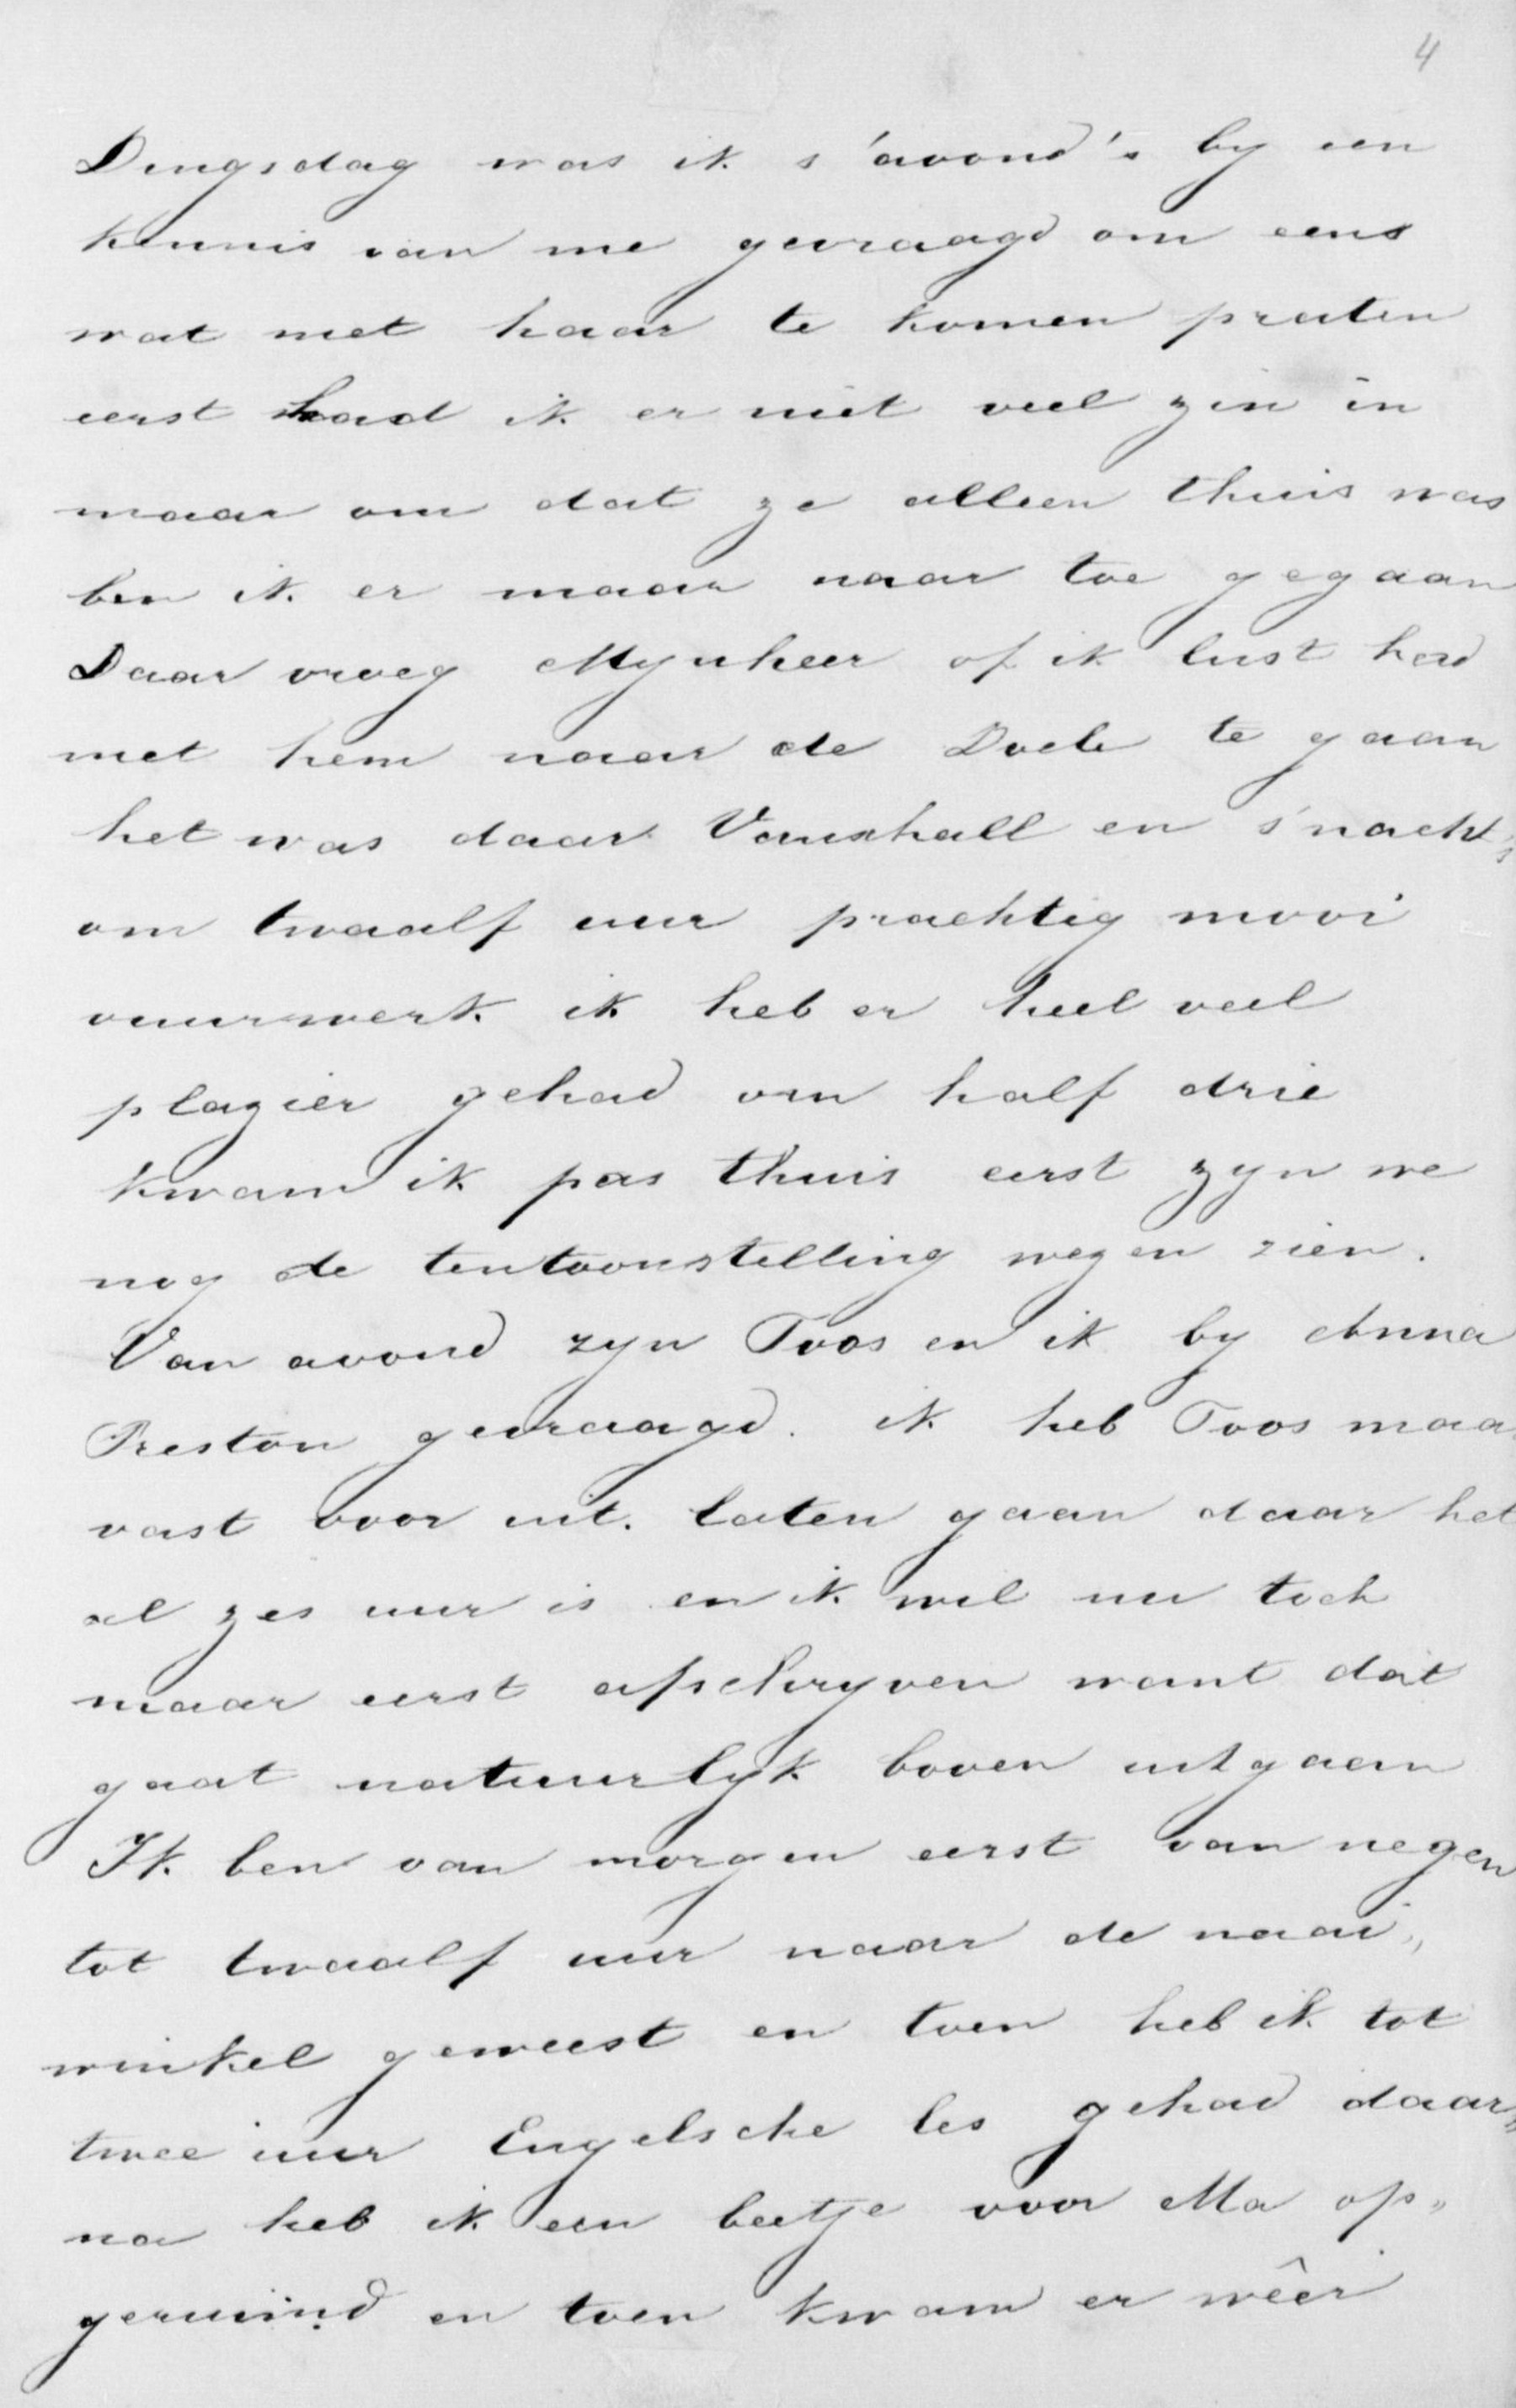 4
Dingsdag was ik s'avond's by een
kennis van me gevraagd om eens
wat met haar te komen praten
eerst had ik er niet veel zin in
maar om dat ze alleen thuis was
ben ik er maar naar toe gegaan
Daar vroeg Mynheer of ik lust had
met hem naar de Doele te gaan
het was daar Vauxhall en s'nacht's
om twaalf uur prachtig mooi
vuurwerk ik heb er heel veel
plazier gehad om half drie
kwam ik pas thuis eerst zyn we
nog de tentoonstelling wezen zien.
Van avond zyn Toos en ik by Anna
Preston gevraagd. ik heb Toos maar
vast voor uit. laten gaan daar het
al zes uur is en ik wil nu toch
maar eerst afschryven want dat
gaat natuurlyk boven uitgaan
Ik ben van morgen eerst van negen
tot twaalf uur naar de naai„
winkel geweest en toen heb ik tot
twee uur Engelsche les gehad daar„
na heb ik een beetje voor Ma op„
geruimd en toen kwam er wêer